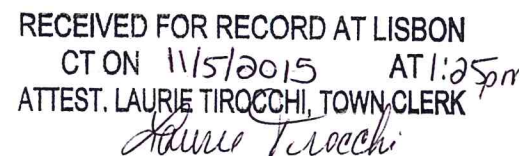 RECEIVED FOR RECORD AT LISBON
CT ON 11/5/2015 AT 1:25pm
ATTEST. LAURIE TIROCCHI, TOWN CLERK
Laurie Tirocchi